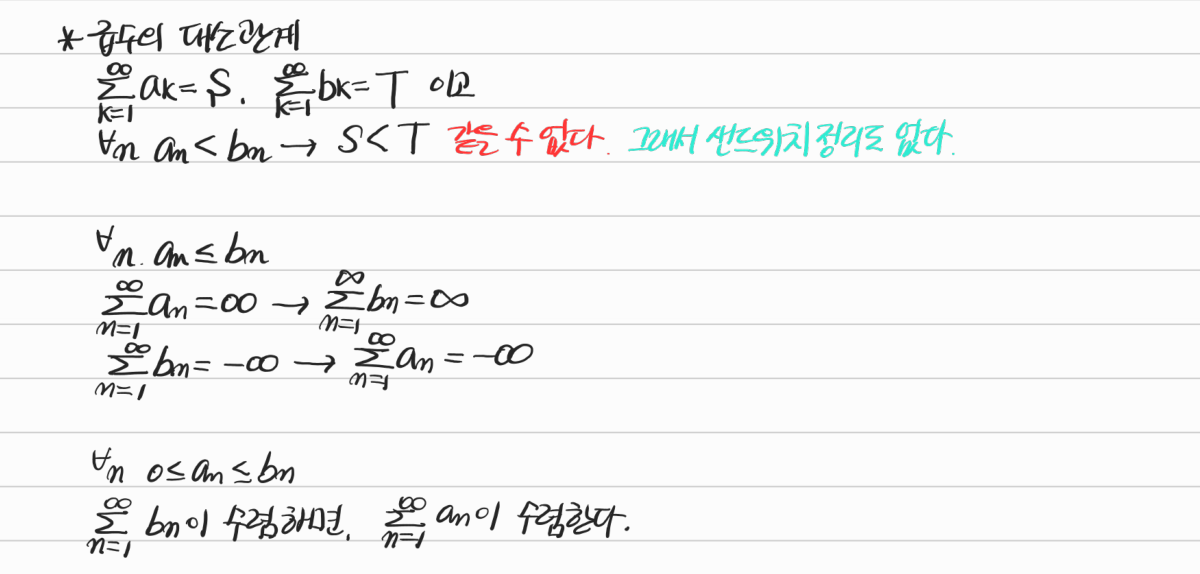 * 급수의 대소관계
∑_{k=1}^{∞} aₖ = S. ∑_{k=1}^{∞} bₖ = T 이고
∀n aₙ < bₙ → S < T 같을 수 없다. 그래서 샌드위치 정리도 없다.
∀n. aₙ ≤ bₙ
∑_{n=1}^{∞} aₙ = ∞ → ∑_{n=1}^{∞} bₙ = ∞
∑_{n=1}^{∞} bₙ = -∞ → ∑_{n=1}^{∞} aₙ = -∞
∀n 0 ≤ aₙ ≤ bₙ
∑_{n=1}^{∞} bₙ이 수렴하면, ∑_{n=1}^{∞} aₙ이 수렴한다.